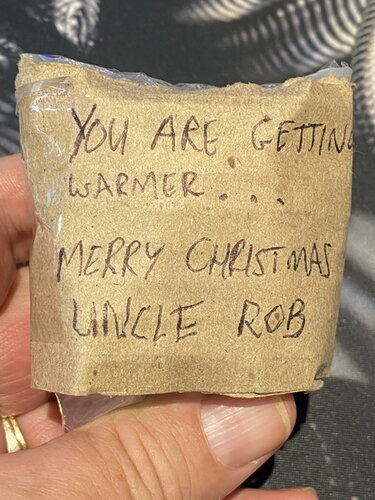 YOU ARE GETTING
WARMER...
MERRY CHRISTMAS
UNCLE ROB